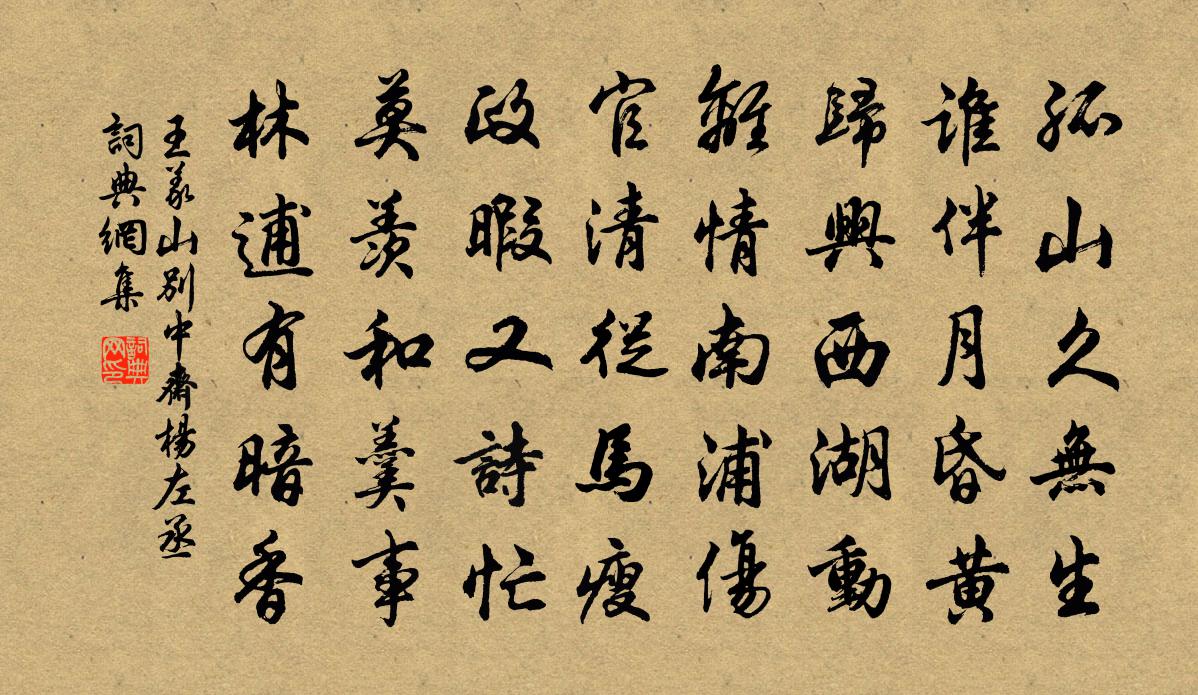 孤山久無生
誰伴月昏黃
歸興西湖動
離情南浦傷
官清從馬瘦
政暇又詩忙
莫羨和羹事
林逋有暗香
王義山別中齋楊左丞
詞典網集
詞典网印